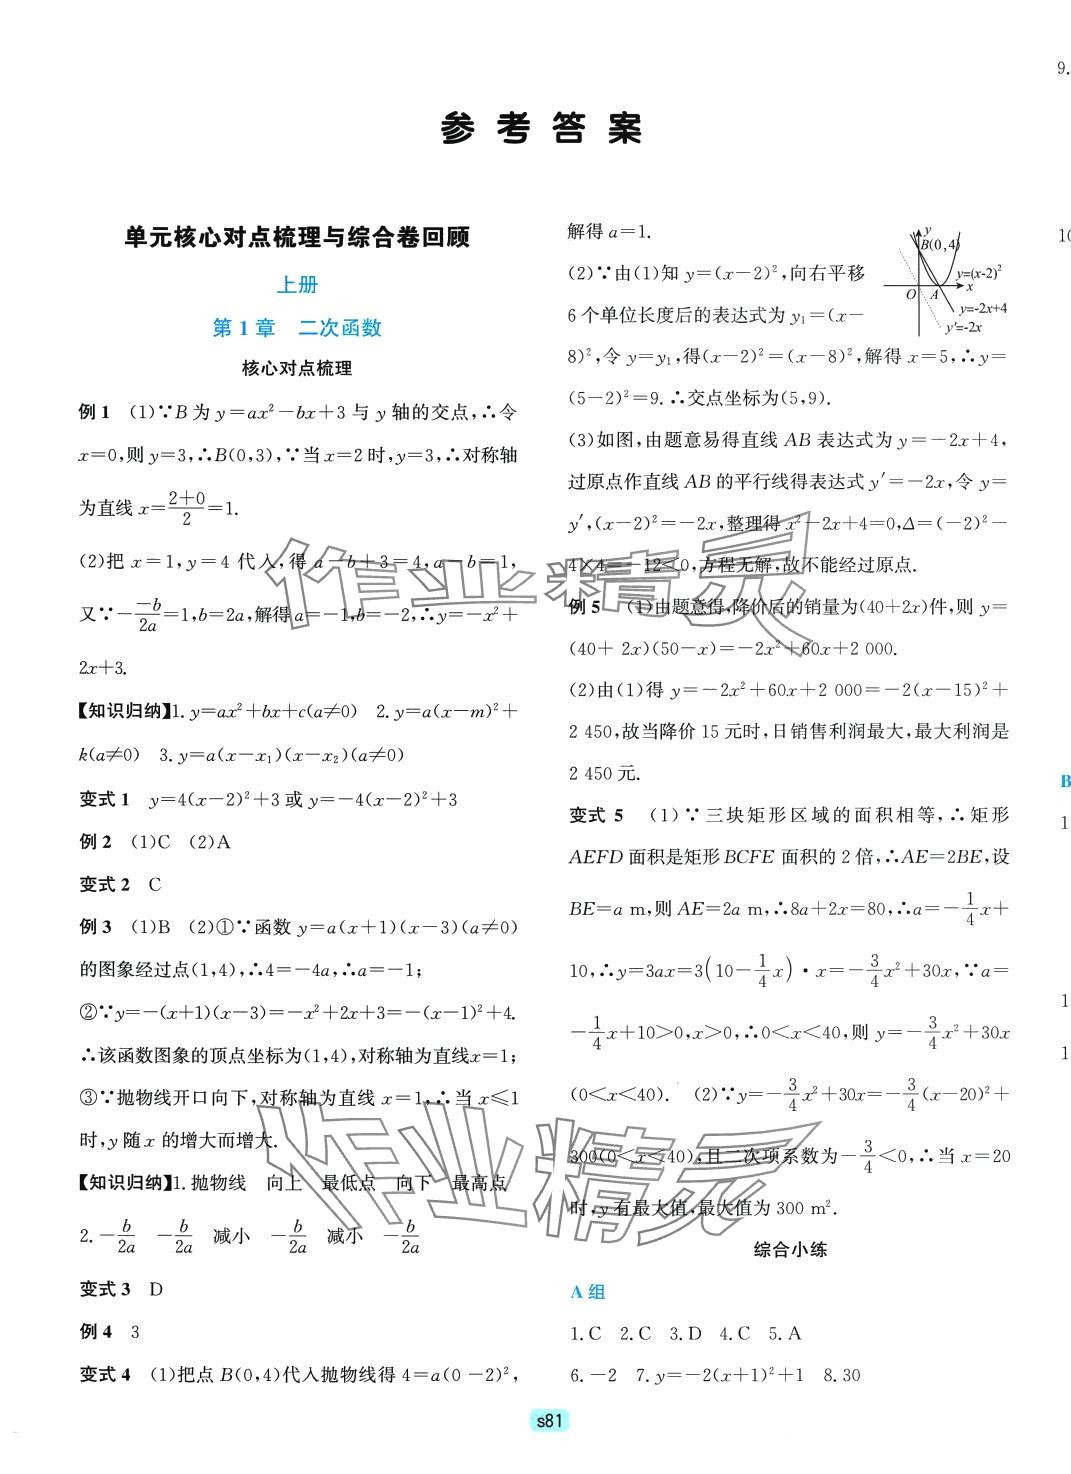 参考答案
单元核心对点梳理与综合卷回顾
上册
第1章 二次函数
核心对点梳理
例1 (1)∵B为y=ax²-bx+3与y轴的交点,∴令
x=0,则y=3,∴B(0,3),∵当x=2时,y=3,∴对称轴
为直线x=\frac{2+0}{2}=1.
(2)把x=1,y=4代入,得a-b+3=4,a-b=1,
又∵-\frac{-b}{2a}=1,b=2a,解得a=-1,b=-2,∴y=-x²+
2x+3.
【知识归纳】1.y=ax²+bx+c(a≠0) 2.y=a(x-m)²+
k(a≠0) 3.y=a(x-x₁)(x-x₂)(a≠0)
变式1 y=4(x-2)²+3或y=-4(x-2)²+3
例2 (1)C (2)A
变式2 C
例3 (1)B (2)①∵函数y=a(x+1)(x-3)(a≠0)
的图象经过点(1,4),∴4=-4a,∴a=-1;
②∵y=-(x+1)(x-3)=-x²+2x+3=-(x-1)²+4.
∴该函数图象的顶点坐标为(1,4),对称轴为直线x=1;
③∵抛物线开口向下,对称轴为直线x=1,∴当x≤1
时,y随x的增大而增大.
【知识归纳】1.抛物线 向上 最低点 向下 最高点
2.-\frac{b}{2a} -\frac{b}{2a} 减小 -\frac{b}{2a} 减小 -\frac{b}{2a}
变式3 D
例4 3
变式4 (1)把点B(0,4)代入抛物线得4=a(0-2)²,
解得a=1.
(2)∵由(1)知y=(x-2)²,向右平移
6个单位长度后的表达式为y₁=(x-
8)²,令y=y₁,得(x-2)²=(x-8)²,解得x=5,∴y=
(5-2)²=9.∴交点坐标为(5,9).
y
B(0,4)
y=(x-2)²
O A x
y=-2x+4
y'=-2x
(3)如图,由题意易得直线AB表达式为y=-2x+4,
过原点作直线AB的平行线得表达式y'=-2x,令y=
y',(x-2)²=-2x,整理得x²-2x+4=0,Δ=(-2)²-
4×4=-12<0,方程无解,故不能经过原点.
例5 (1)由题意得,降价后的销量为(40+2x)件,则y=
(40+2x)(50-x)=-2x²+60x+2 000.
(2)由(1)得y=-2x²+60x+2 000=-2(x-15)²+
2 450,故当降价15元时,日销售利润最大,最大利润是
2 450元.
变式5 (1)∵三块矩形区域的面积相等,∴矩形
AEFD面积是矩形BCFE面积的2倍,∴AE=2BE,设
BE=a m,则AE=2a m,∴8a+2x=80,∴a=-\frac{1}{4}x+
10,∴y=3ax=3(10-\frac{1}{4}x)·x=-\frac{3}{4}x²+30x,∵a=
-\frac{1}{4}x+10>0,x>0,∴0<x<40,则y=-\frac{3}{4}x²+30x
(0<x<40). (2)∵y=-\frac{3}{4}x²+30x=-\frac{3}{4}(x-20)²+
300(0<x<40),且二次项系数为-\frac{3}{4}<0,∴当x=20
时,y有最大值,最大值为300 m².
综合小练
A组
1.C 2.C 3.D 4.C 5.A
6.-2 7.y=-2(x+1)²+1 8.30
s81
作业精灵
作业精灵
9.
10
B
1
1
1